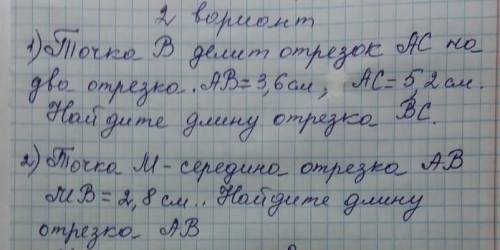 2 вариант
1) Точка В делит отрезок АС на
два отрезка. АВ=3,6 см, АС=5,2 см.
Найдите длину отрезка ВС.
2) Точка М - середина отрезка АВ
МВ=2,8 см.. Найдите длину
отрезка АВ